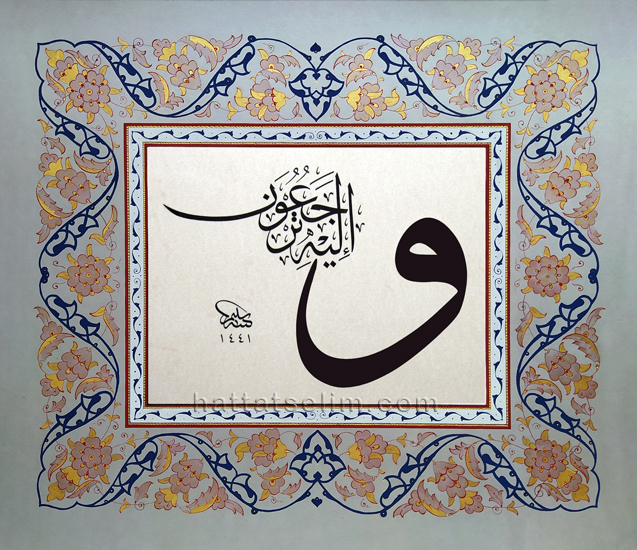 وَإِلَيْهِ تُرْجَعُونَ
١٤٤١
hattatselim.com